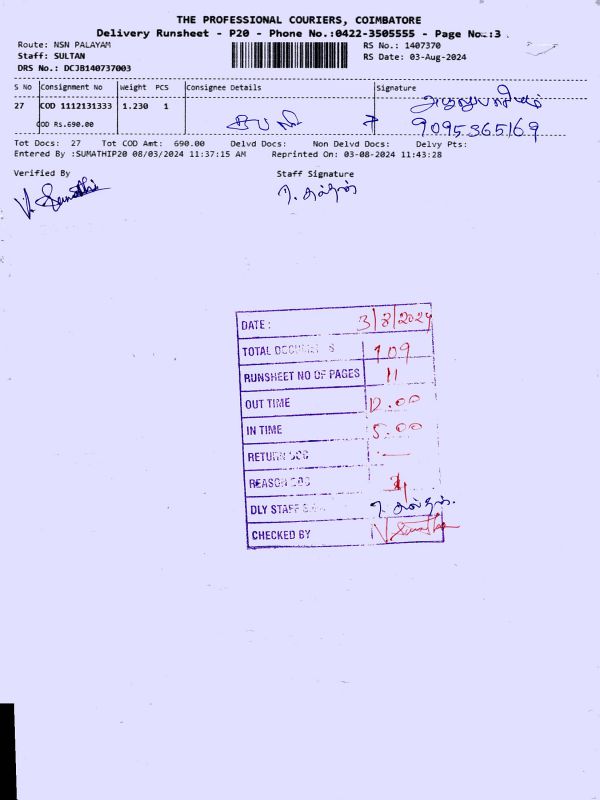 THE PROFESSIONAL COURIERS, COIMBATORE
Delivery Runsheet - P20 - Phone No.:0422-3505555 - Page No.:3
Route: NSN PALAYAM RS No.: 1407370
Staff: SULTAN RS Date: 03-Aug-2024
DRS No.: DCJB140737003
S No Consignment No Weight PCS Consignee Details Signature
27 COD 1112131333 1.230 1
COD Rs.690.00 9095365169
Tot Docs: 27 Tot COD Amt: 690.00 Delvd Docs: Non Delvd Docs: Delvy Pts:
Entered By :SUMATHIP20 08/03/2024 11:37:15 AM Reprinted On: 03-08-2024 11:43:28
Verified By Staff Signature
V. Sumathi
DATE : 3/8/2024
TOTAL 109
RUNSHEET NO OF PAGES 11
OUT TIME 12.00
IN TIME 5.00
RETURN DOC —
REASON DOC
DLY STAFF
CHECKED BY V. Sumathi